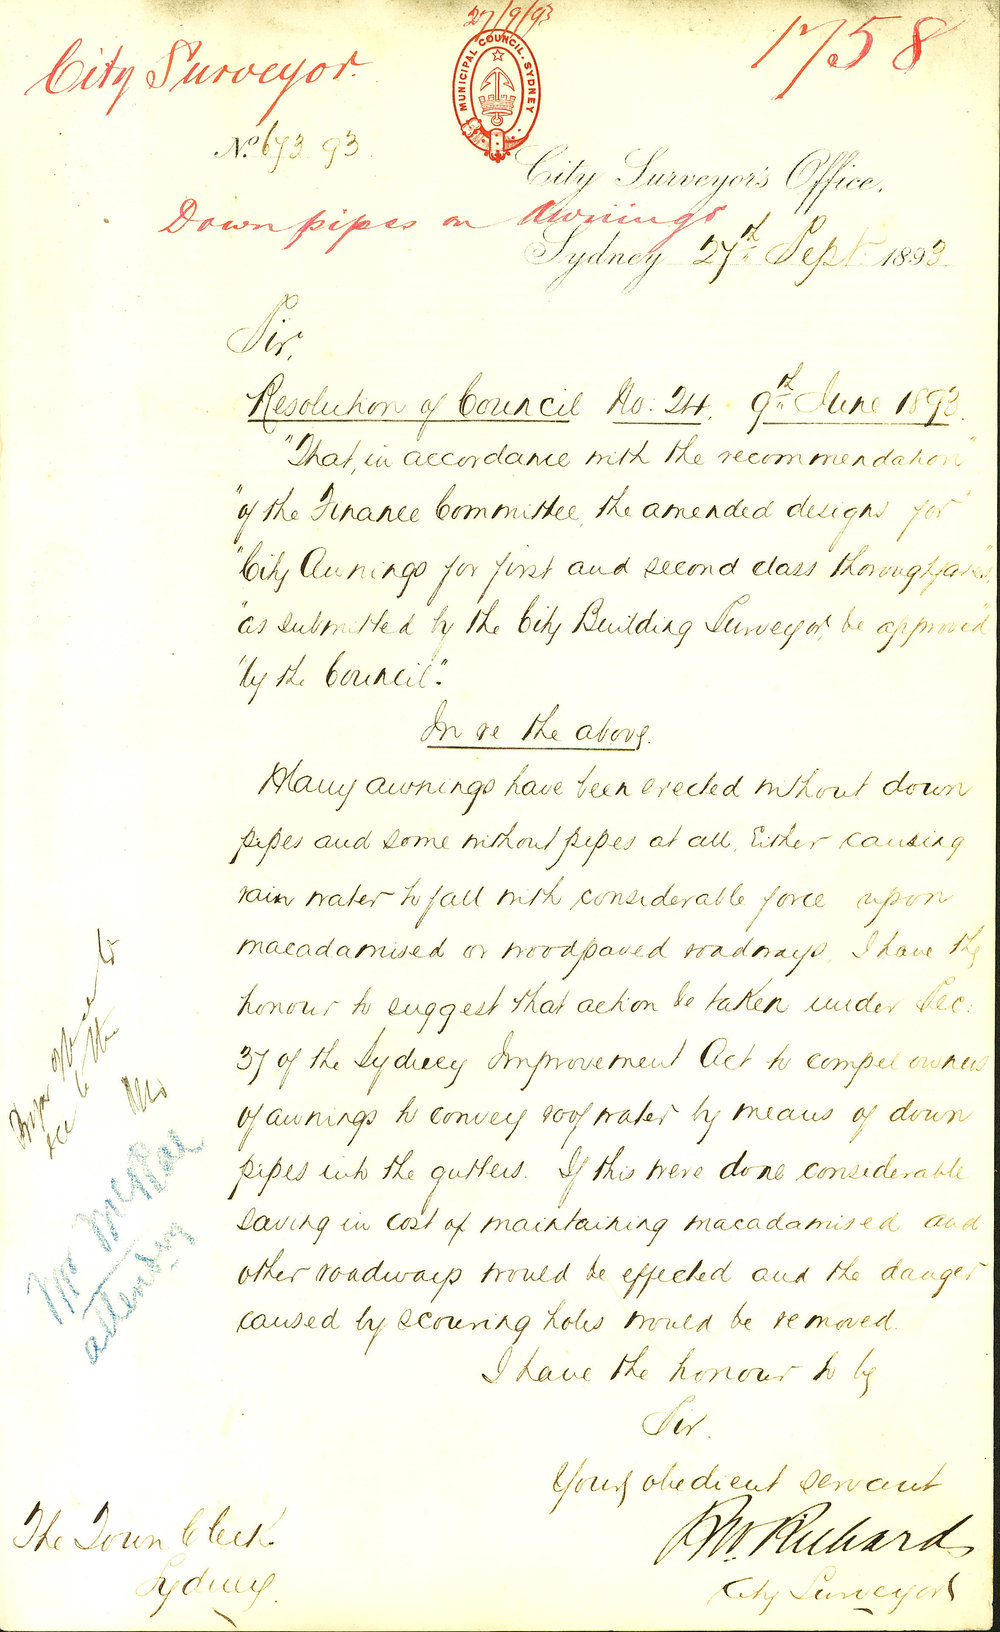 27/9/93
City Surveyor.
1758
MUNICIPAL COUNCIL. SYDNEY
No. 673 93
City Surveyor's Office,
Down pipes on Awnings
Sydney 27th Sept 1893
Sir,
Resolution of Council No: 24. 9th June 1893.
"That, in accordance with the recommendation"
"of the Finance Committee, the amended designs for"
"City Awnings for first and second class thoroughfares,"
"as submitted by the City Building Surveyor, be approved"
"by the Council".
In re the above.
Many awnings have been erected without down
pipes and some without pipes at all. Either causing
rain water to fall with considerable force upon
macadamised or woodpaved roadways. I have the
honour to suggest that action be taken under Sec:
37 of the Sydney Improvement Act to compel owners
of awnings to convey roof water by means of down
pipes into the gutters. If this were done considerable
saving in cost of maintaining macadamised and
other roadways would be effected and the danger
caused by scouring holes would be removed.
I have the honour to be
Sir.
Your obedient servant
Richards
City Surveyor
The Town Clerk.
Sydney.
Mr McRae
attending